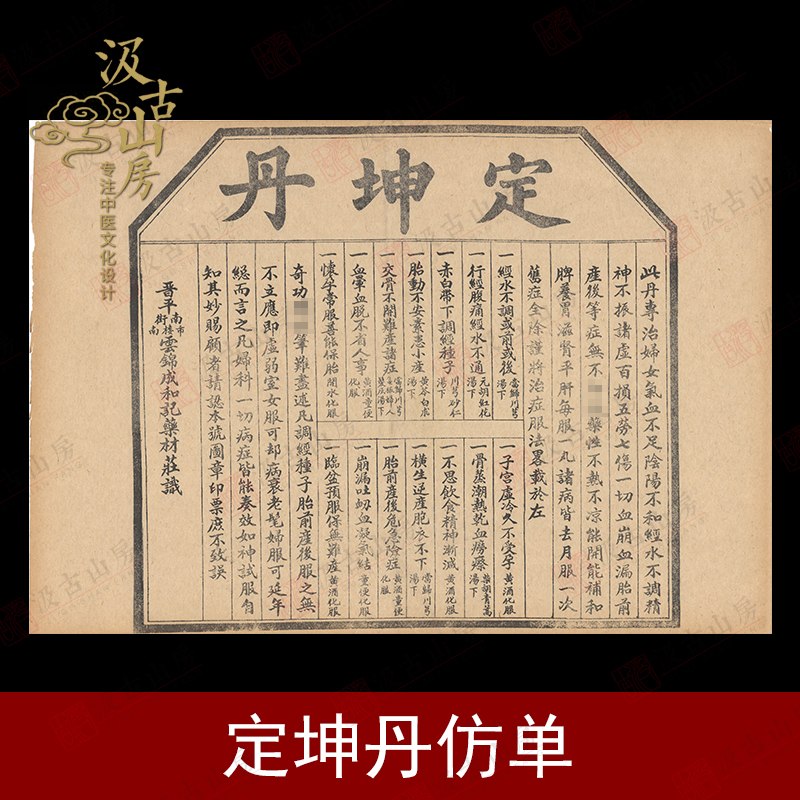 汲古山房
专注中医文化设计
定坤丹
此丹專治婦女氣血不足陰陽不和經水不調精
神不振諸虛百損五勞七傷一切血崩血漏胎前
產後等症無不 藥性不熱不凉能開能補和
脾養胃滋腎平肝每服一丸諸病皆去月服一次
舊症全除謹將治症服法畧載於左
一經水不調或前或後 當歸川芎湯下
一行經腹痛經水不通 元胡紅花湯下
一赤白帶下調經種子 川芎砂仁湯下
一胎動不安素患小產 黃芩白朮湯下
一交骨不開難產諸症
一血暈血脫不省人事 黃酒童便化服
一懷孕常服善能保胎 開水化服
一子宮虛冷久不受孕 黃酒化服
一骨蒸潮熱乾血癆瘵 柴胡青蒿湯下
一不思飲食精神漸減 黃酒化服
一橫生逆產胞衣不下 當歸川芎湯下
一胎前產後危急險症 黃酒童便化服
一崩漏吐衂血凝氣結 童便化服
一臨盆預服保無難產 黃酒化服
奇功 筆難盡述凡調經種子胎前產後服之無
不立應即虛弱室女服可却病衰老髦婦服可延年
總而言之凡婦科一切病症皆能奏效如神試服自
知其妙賜顧者請認本號圖章印票庶不致誤
晋平南市樓街南雲錦成和記藥材莊識
定坤丹仿单